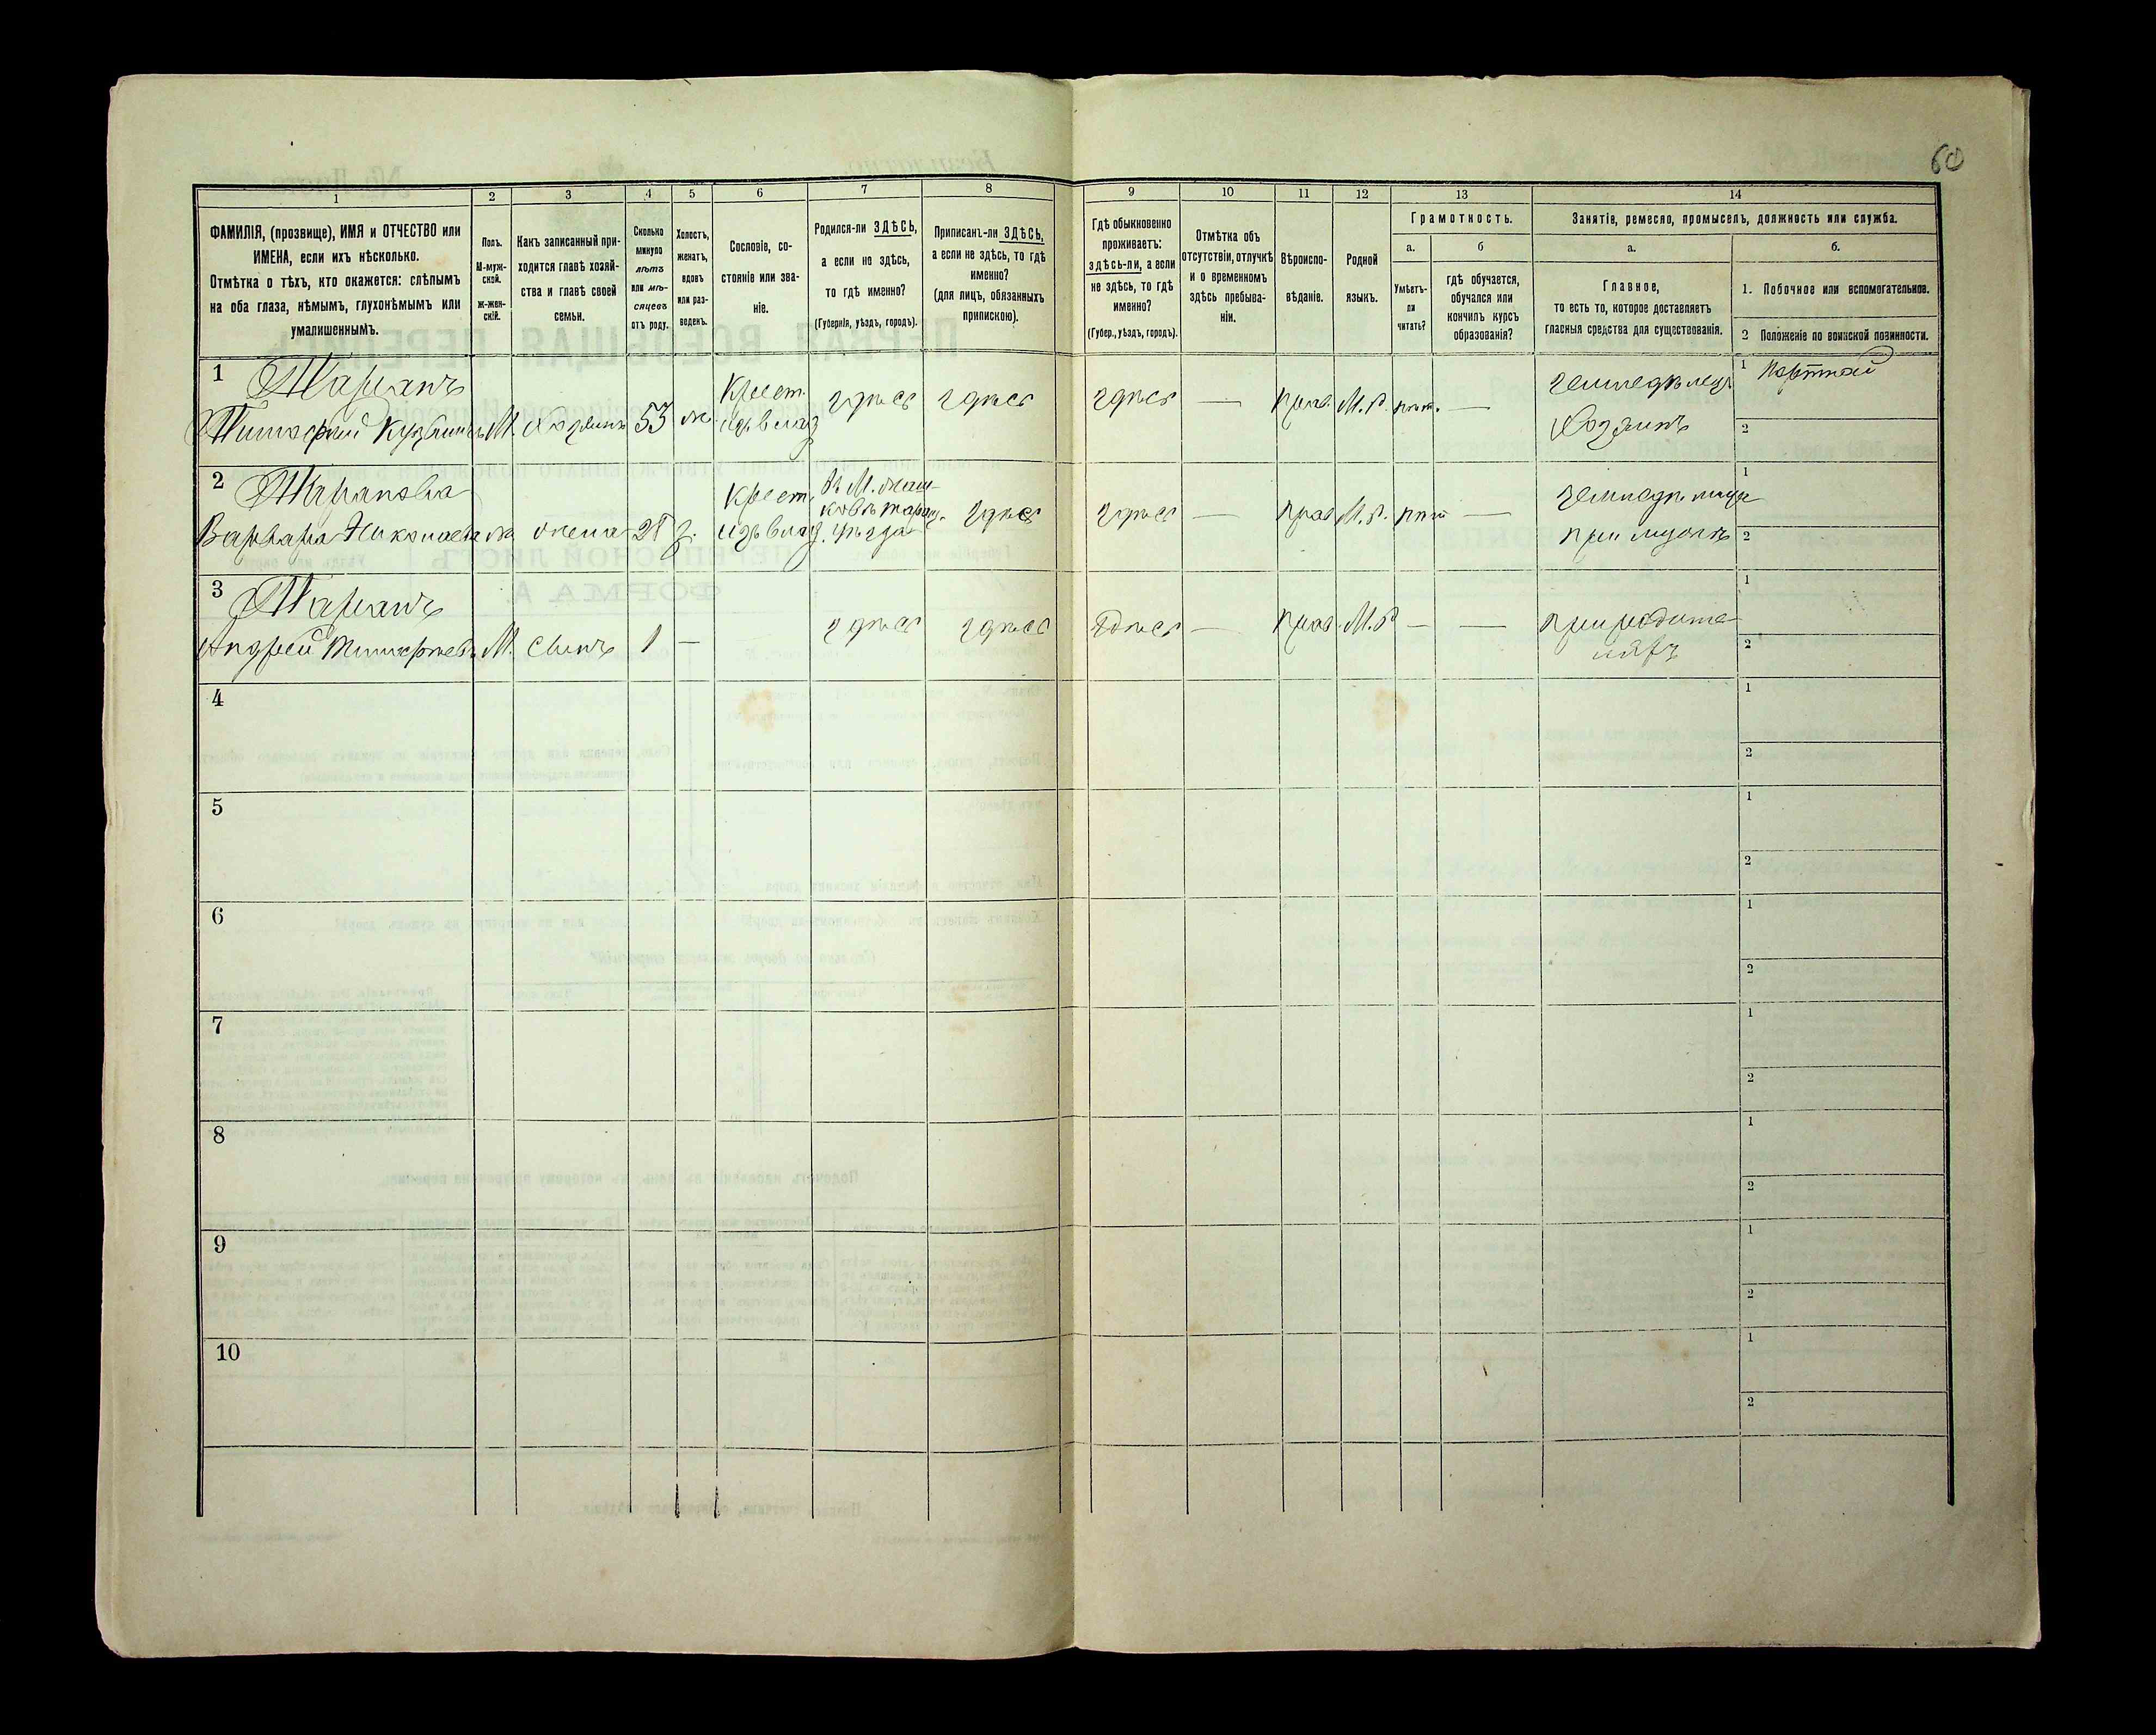 60
1
2
3
4
5
6
7
8
9
10
11
12
13
14
ФАМИЛІЯ, (прозвище), ИМЯ и ОТЧЕСТВО или
ИМЕНА, если ихъ нѣсколько.
Отмѣтка о тѣхъ, кто окажется: слѣпымъ
на оба глаза, нѣмымъ, глухонѣмымъ или
умалишеннымъ.
Полъ.
М-муж-
ской.
Ж-жен-
скій.
Какъ записанный при-
ходится главѣ хозяй-
ства и главѣ своей
семьи.
Сколько
минуло
лѣтъ
или мѣ-
сяцевъ
отъ роду.
Холостъ,
женатъ,
вдовъ
или раз-
веденъ.
Сословіе, со-
стояніе или зва-
ніе.
Родился-ли ЗДѢСЬ,
а если не здѣсь,
то гдѣ именно?
(Губернія, уѣздъ, городъ).
Приписанъ-ли ЗДѢСЬ,
а если не здѣсь, то гдѣ
именно?
(для лицъ, обязанныхъ
припискою).
Гдѣ обыкновенно
проживаетъ:
здѣсь-ли, а если
не здѣсь, то гдѣ
именно?
(Губер., уѣздъ, городъ).
Отмѣтка объ
отсутствіи, отлучкѣ
и о временномъ
здѣсь пребыва-
ніи.
Вѣроиспо-
вѣданіе.
Родной
языкъ.
Грамотность.
а.
Умѣетъ-
ли
читать?
б
гдѣ обучается,
обучался или
кончилъ курсъ
образованія?
Занятіе, ремесло, промыселъ, должность или служба.
а.
Главное,
то есть то, которое доставляетъ
главныя средства для существованія.
б.
1. Побочное или вспомогательное.
2 Положеніе по воинской повинности.
1
Таранъ
Тимофѣй
М.
Хозяинъ
53
ж.
Крест.
изъ влад
здѣсь
здѣсь
здѣсь
—
прав.
М.Р.
—
земледѣлец
Хозяинъ
1 Портной
2
2
Таранова
Варвара Николаева
ж
жена
28
з.
Крест.
изъ влад.
въ М.
уѣзда
здѣсь
здѣсь
—
прав
М.Р.
—
при мужѣ
1
2
3
Таранъ
Андрей Тимофѣевъ
М.
Сынъ
1
—
здѣсь
здѣсь
здѣсь
—
прав.
М.Р
—
—
при родите-
ляхъ
1
2
4
1
2
5
1
2
6
1
2
7
1
2
8
1
2
9
1
2
10
1
2